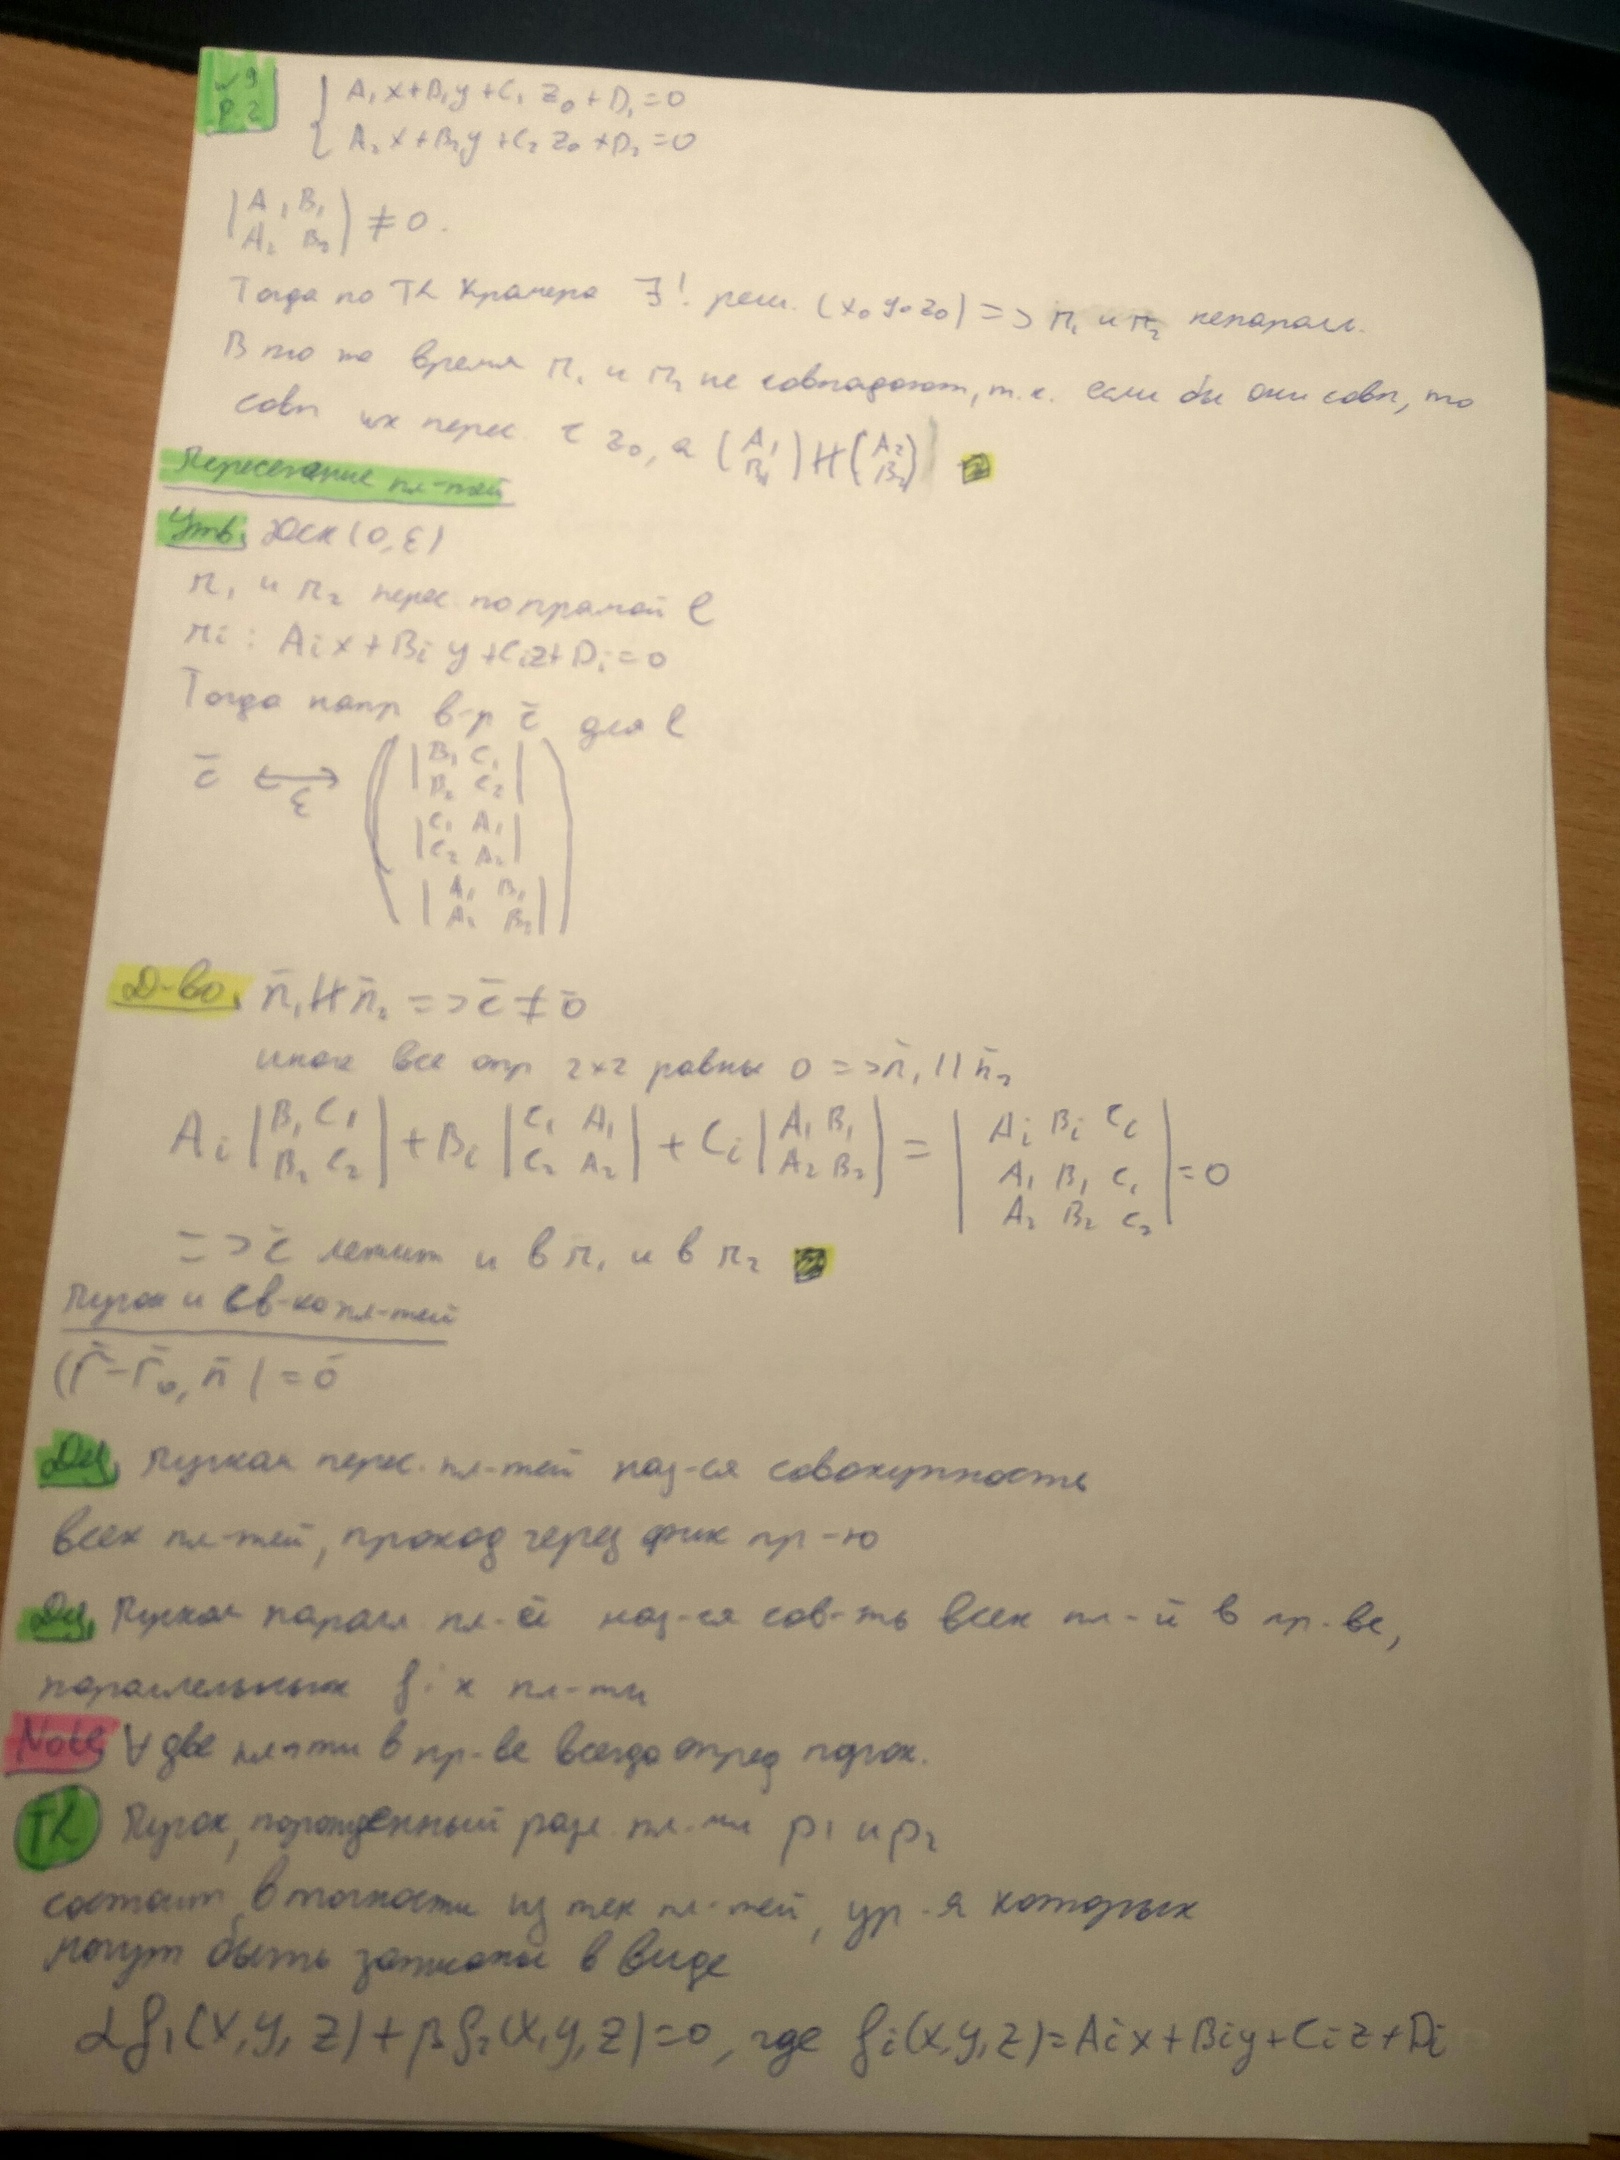 √9
P.2
{ A₁x+B₁y+C₁z₀+D₁=0
A₂x+B₂y+C₂z₀+D₂=0
|A₁ B₁
A₂ B₂| ≠ 0.
Тогда по Th Крамера ∃! реш. (x₀ y₀ z₀) => π₁ и π₂ непаралл.
В то же время π₁ и π₂ не совпадают, т.к. если бы они совп, то
совп их перес. с z₀, а (A₁ B₁) ∦ (A₂ B₂)
Пересечение пл-тей
Утв. ДСК (O, ε)
π₁ и π₂ перес по прямой l
πi : Aix+Biy+Ciz+Di=0
Тогда напр в-р c̄ для l
c̄ ⟷ ε
( |B₁ C₁
B₂ C₂|
|C₁ A₁
C₂ A₂|
|A₁ B₁
A₂ B₂| )
Д-во. n̄₁ ∦ n̄₂ => c̄ ≠ ō
иначе все опр 2×2 равны 0 => n̄₁ || n̄₂
Ai |B₁ C₁ B₂ C₂| + Bi |C₁ A₁ C₂ A₂| + Ci |A₁ B₁ A₂ B₂| = |Ai Bi Ci A₁ B₁ C₁ A₂ B₂ C₂| = 0
=> c̄ лежит и в π₁ и в π₂
Пучок и св-ко пл-тей
(r̄-r̄₀, n̄) = ō
Def. Пучком перес. пл-тей наз-ся совокупность
всех пл-тей, проход через фик пр-ю
Def. Пучком паралл пл-й наз-ся сов-ть всех пл-й в пр-ве,
параллельных fix пл-ти
Note, ∀ две пл-ти в пр-ве всегда опред пучок.
Th Пучок, порожденный разл. пл-ми ρ₁ и ρ₂
состоит в точности из тех пл-тей, ур-я которых
могут быть записаны в виде
αf₁(x,y,z)+βf₂(x,y,z)=0, где fi(x,y,z)=Aix+Biy+Ciz+Di